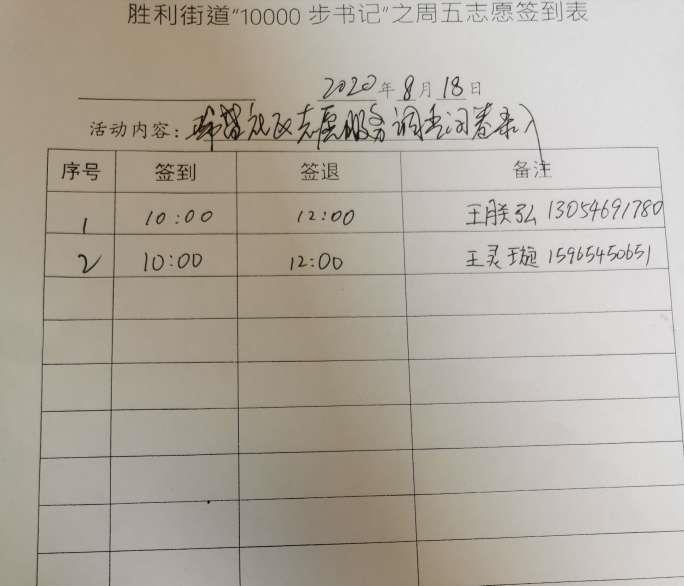 胜利街道“10000步书记”之周五志愿签到表
2020年8月18日
活动内容: 社区志愿服务调查问卷录入
序号 签到 签退 备注
1 10:00 12:00 王朕弘 13054691780
2 10:00 12:00 王灵璇 15965450651